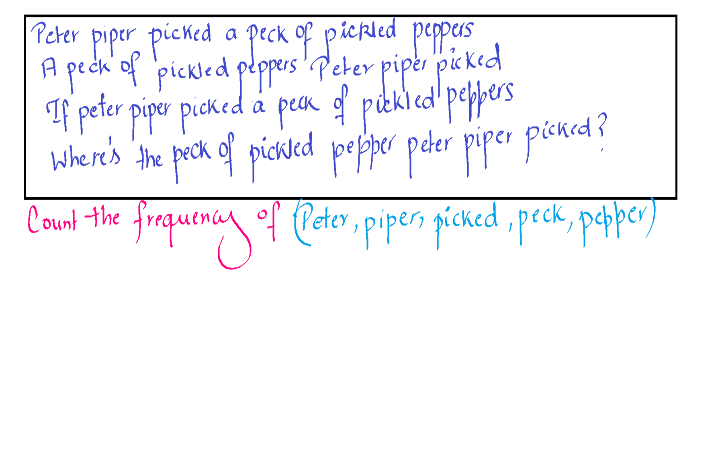 Peter piper picked a peck of pickled peppers
A peck of pickled peppers Peter piper picked
If peter piper picked a peck of pickled peppers
Where's the peck of pickled pepper peter piper picked?
Count the frequency of (Peter, piper, picked, peck, pepper)